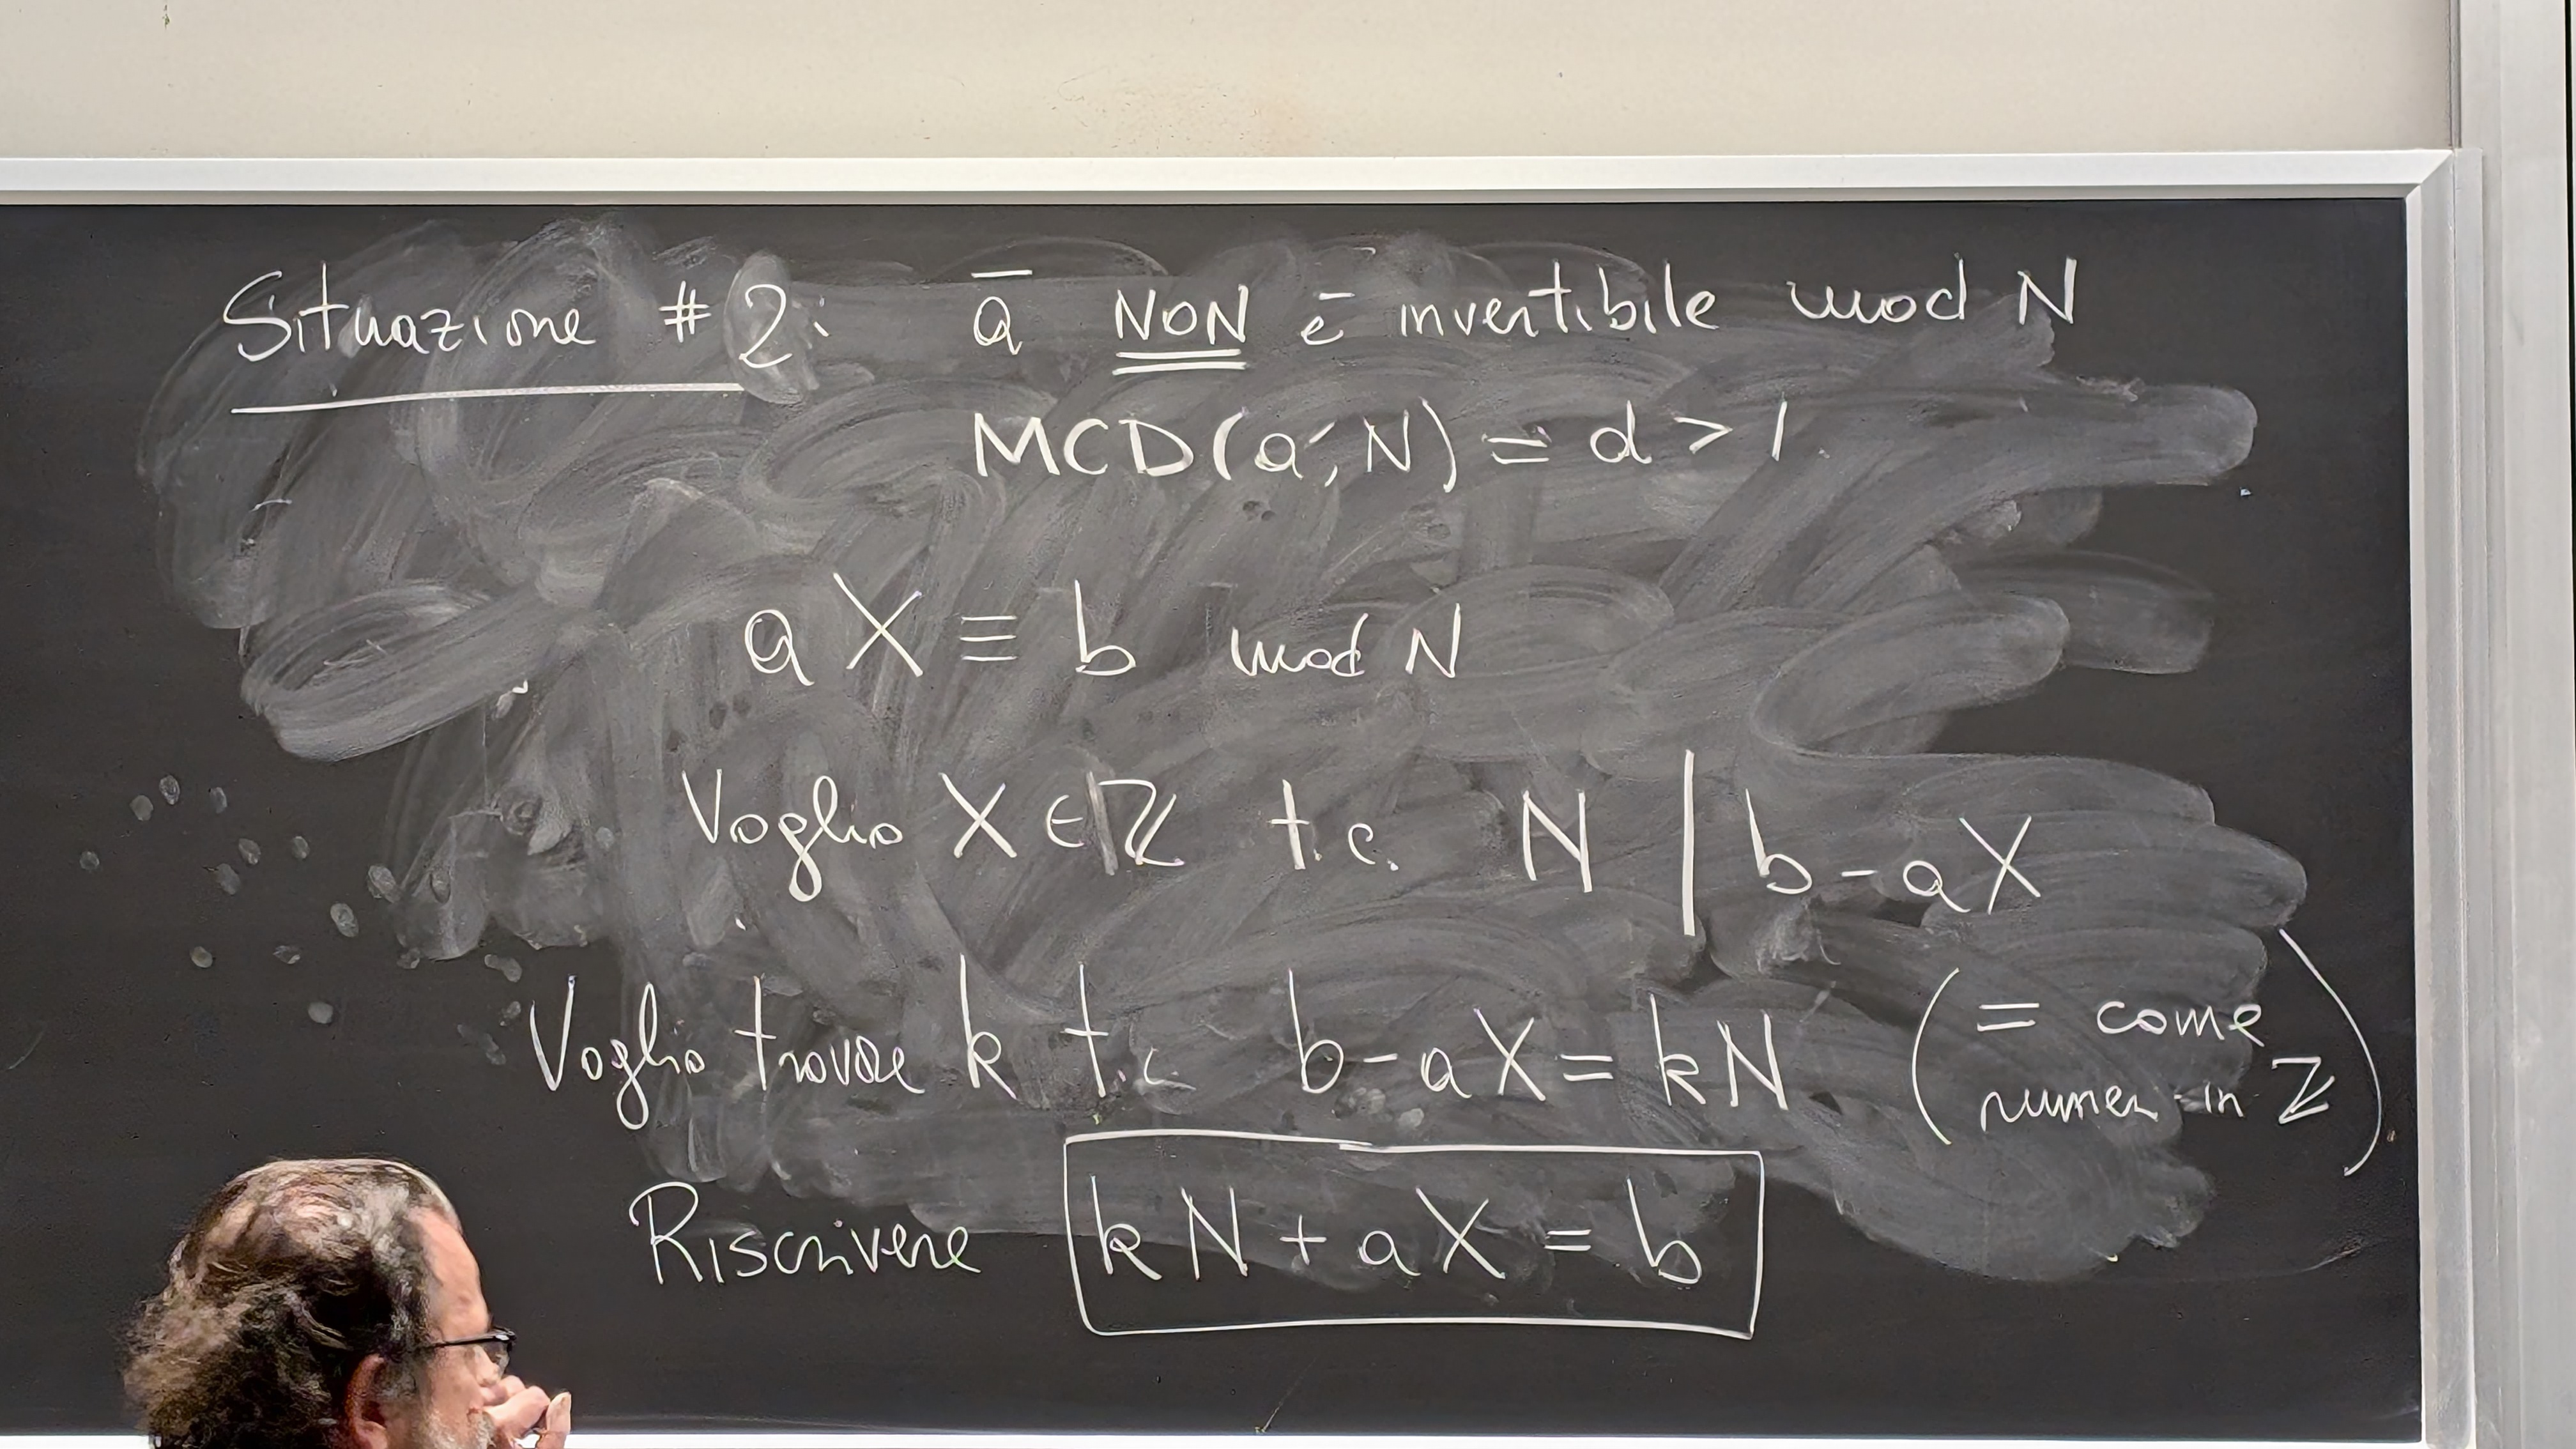 Situazione #2: ā NON è invertibile mod N
MCD(a; N) = d > 1
aX ≡ b mod N
Voglio X ∈ ℤ t.c. N | b-aX
Voglio trovare k t.c. b-aX = kN (= come
numeri in ℤ)
Riscrivere kN + aX = b